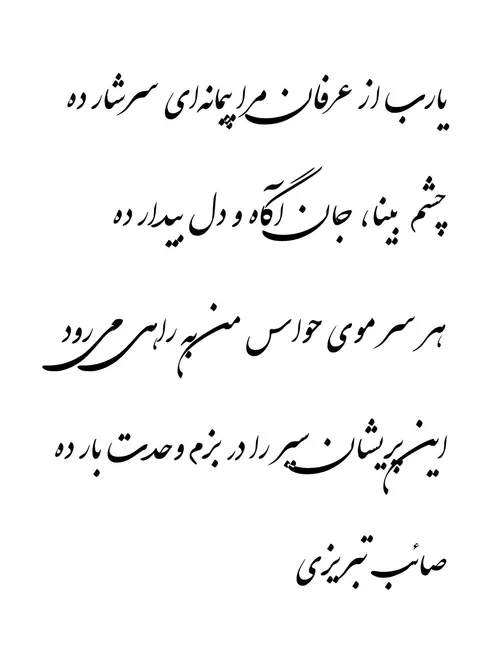 یارب از عرفان مرا پیمانه‌ای سرشار ده
چشم بینا، جان آگاه و دل بیدار ده
هر سر موی حواس من به راهی می‌رود
این پریشان سیر را در بزم وحدت بار ده
صائب تبریزی